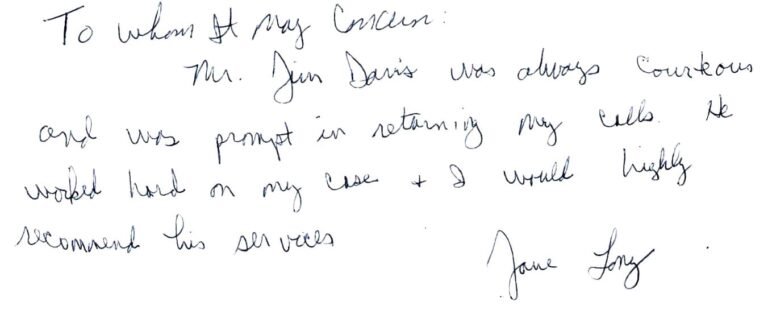 To whom It May Concern:
Mr. Jim Davis was always courteous
and was prompt in returning my calls. He
worked hard on my case + I would highly
recommend his services
Jane Long